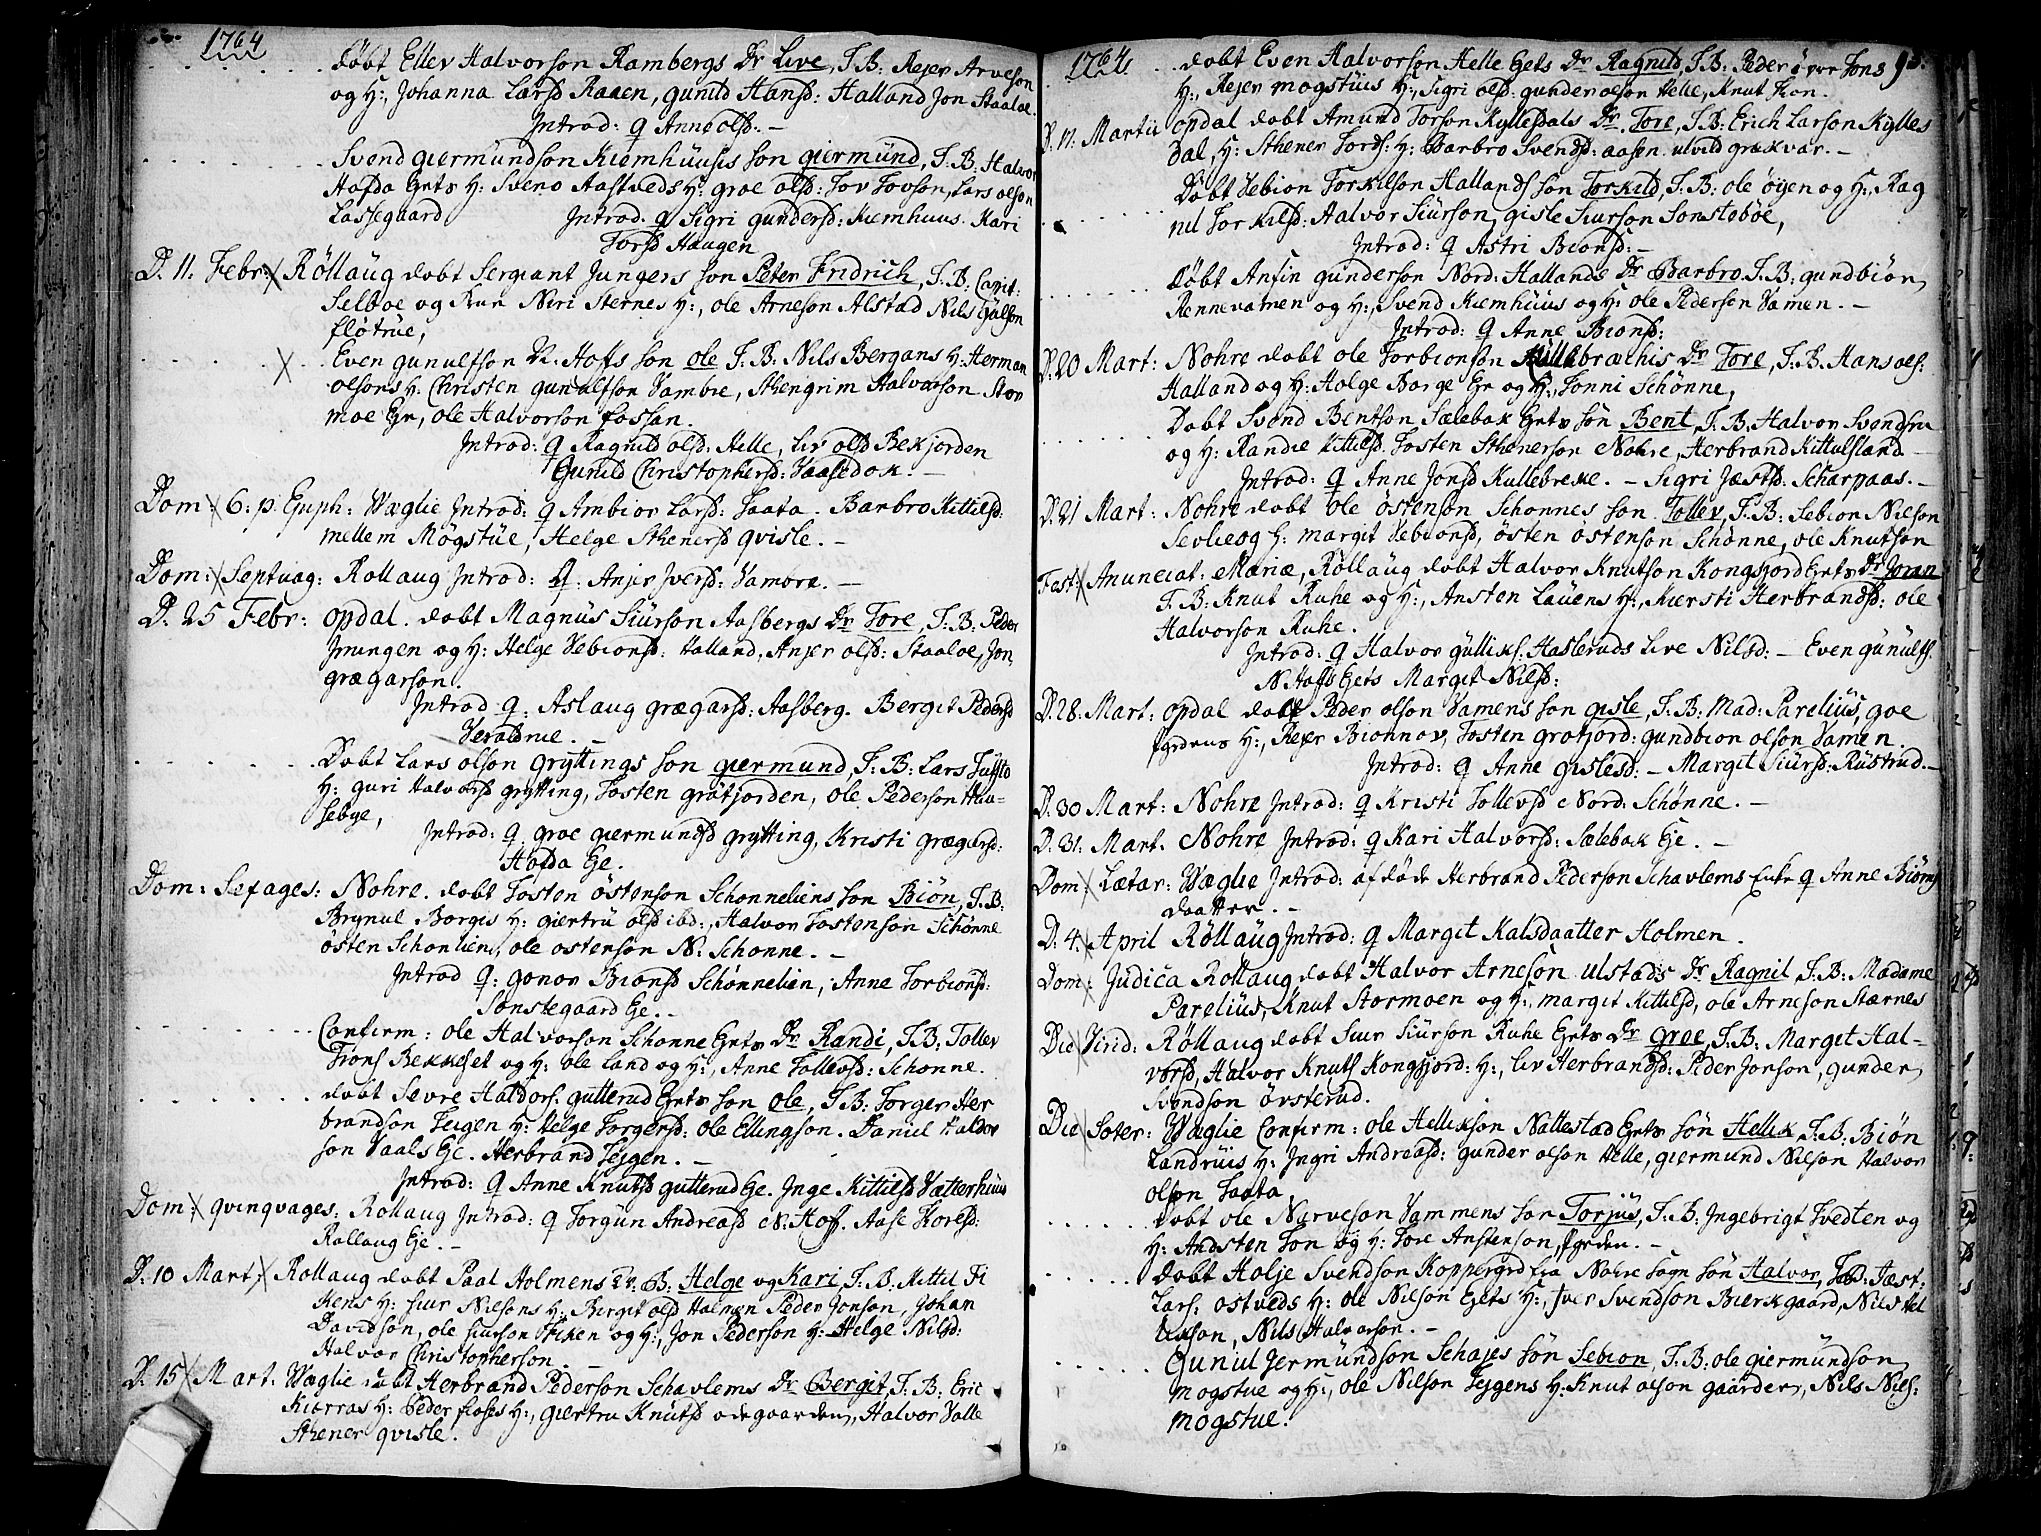 1764
döbt Ellev Halvorson Rambergs Dr Live, T.B: Rejer Arveson
og H:, Johanna Larsd Raaen, gunild Hansd: Halland Jon Staaloe.
Introd: Q Anne olsd: –
Svend giermundson Kiemhuusis son giermund, T.B: Halvor
Hafda Eiets H: Sveno Aastveds H: groe olsd: Tov Tovson, Lars olson
Lassegaard Introd. Q Sigri gundersd: Kiemhuus. Kari
Torsd Haugen
D. 11. Febr: Röllaug döbt Sergiant Jungers son Peter Fridrich, T.B: Capit:
Selboe og Frue Niri Sternes H:, ole Arneson Alstad Nils gulson
flötrue,
Even gunulfson N. Hoffs son ole T.B. Nils Bergans H: Herman
olsons H: Christen gunulfson Vambre, Sthengrim Halvorson Stor
moe Eje, ole Halvorson Fossan.
Introd: Q Ragnild olsd: Helle, Liv olsd Bekjorden
Gunild Christophersd: Vaasedok. –
Dom: 6. p. Epiph: Væglie Introd: Q Ambior Larsd: Taata. Barbro Kittilsd:
mellem Mögstue, Helge Sthenersd qvisle. –
Dom: Septuag: Rollaug Introd: Q: Anjer Iversd: Vambre. –
D. 25 Febr: opdal. döbt Magnus Siurson Aasbergs Dr Tore, T.B: Peder
Imingen og H: Helge Vebionsd: Halland, Anjer olsd: Staaloe, Jon
grægarson.
Introd Q: Aslaug grægarsd: Aasberg. Bergit Pedersd
Veraldrue. –
Döbt Lars olson gryttings son giermund, T.B: Lars Tufto
H: guri Halvorsd grytting, Tosten grötjorden, ole Pederson Huu-
sebye,
Introd: Q groe giermundsd grytting, Kristi grægarsd:
Hafda Eje.
Dom: Sexages: Nohre. döbt Tosten östenson Schonneliens son Biön, T.B:
Brynul Borges H: giertru olsd ibd:, Halvor Tostenson Schönne
östen Schonlien, ole ostenson N: Schonne. –
Introd Q: gonor Bionsd Schönnelien, Anne Torbionsd:
Sonstegaard Eje. –
Confirm: ole Halvorson Schonne Eiets Dr Randi, T.B: Tollev
Trons Bekkeset og H: ole Land og H:, Anne Tollevsd: Schonne.
döbt Sevre Haldors: gutterud Eiets son ole, T.B: Torger Her
brandson Teigen H: Helge Torgersd: ole Ellingson. Daniel Haldor
son Vaals Eje. Herbrand Tejgen. –
Introd: Q Anne Knutsd gutterud Eje. Inge Kittilsd Vætterhuus
Dom: qvinqvages: Rollaug Introd: Q Torgun Andreasd N. Hof. Aase Toresd:
Rollaug Eje. –
D. 10 Mart: Rollaug döbt Paal Holmens Tv: B: Helge og Kari, T.B: Kittil Fi
kens H: siur Nilsons H: Bergit olsd Holmen Peder Jonson, Johan
Davidson, ole siurson Fiken og H:, Jon Pederson H: Helge Nilsd:
Halvor Christopherson. –
D. 15 Mart. Væglie döbt Herbrand Pederson Schavlems Dr Bergit, T.B: Eric
Kierras H: Peder floses H:, giertru Knutsd odegaarden, Halvor Valle
Sthener qvisle.
1764
93.
döbt Even Halvorson Helle Eiets Dr Ragnild, T.B: Peder överTons
H:, Rejer mogstuus H:, Sigri olsd: gunder olson Helle, Knut Tron.
D. 11. Martii opdal döbt Amund Torson Kyllesdals Dr Tore, T.B: Erich Larson Kylles
dal, H: Sthener Tords: H: Barbro Svendsd: aasen. ulvild grækvar. –
Döbt Vebion Torkilson Hallands son Torkild, T.B: ole öyen og H:, Rag
nil Torkilsd: Halvor Siurson, gisle Siurson Sonstoböe,
Introd: Q Astri Bionsd: –
döbt Ansin gunderson Nord: Hallands Dr Barbro T.B: gundbiön
Rennevatnen og H:, Svend Kiemhuus og H: ole Pederson Vamen. –
Introd: Q Anne Bionsd:
D. 20 Mart: Nohre döbt ole Torbionson Kullebrækhis Dr Tore, T.B. Hans ols:
Halland og H: Holge Borge Eje og H:, Tonni Schönne,
Dobt Svend Bentson Sælebak Eiets son Bent, T.B. Halvor Svendsru
og H: Randie Kittilsd, Tosten Sthenerson Nohre, Herbrand Kittulsland. –
Introd: Q Anne Jonsd Kullebreke. – Sigri Jæstsd: Scharpaas. –
D. 21 Mart: Nohre döbt ole östenson Schonnes son Tollev, T.B: Sebion Nilson
Sevlie og H: margit Vebionsd, östen östenson Schönne, ole Knutson
Fest: Anunciat: Mariæ, Röllaug döbt Halvor Knutson Kongsjord Eiets Dr Joran
T.B: Knut Ruhe og H:, Ansten Lauens H:, Kiersti Herbrandsd: ole
Halvorson Ruhe.
Introd: Q Halvor gulliks: Hasleruds Live Nilsd: – Even gunults.
N. Hoffs Eiets Margit Nilsd:
D. 28. Mart: opdal döbt Peder olson Vamens son gisle, T.B: Mad: Parelius, goe
fgrdens H:, Rejer Bionnov, Tosten grotjord: gundbion olson Vamen.
Introd: Q Anne gislesd: – Margit Siursd: Rustrud. –
D. 30 Mart: Nohre Introd: Q Kristi Tollevsd Nord: Schönne. –
D. 31. Mart. Nohre Introd: Q Kari Halvorsd: Sælebak Eje. –
Dom: Lætar: Væglie Introd: afdöde Herbrand Pederson Schavlems Enke Q Anne Biöns
daatter. –
D. 4. April Röllaug Introd: Q Margit Kalsdaatter Holmen.
Dom: Judica Rollaug döbt Halvor Arneson Ulstads Dr Ragnil T.B: Madame
Parelius, Knut Stormoen og H:, margit Kittilsd, ole Arneson Stærnes
Die Virid: Röllaug döbt Siur Siurson Ruhe Eiets Dr groe, T.B: Margit Hal-
vorsd, Halvor Knuts Kongsjord: H:, Liv Herbrandsd: Peder Jonson, gunder
Svendson övsterud.
Die Soter: Væglie Confirm: ole Hellikson Nattestad Eiets son Hellik T.B: Biön
Landruis H: Ingri Andreasd: gunder olson Helle, giermund Nilson Halvor
olson Taata.
döbt ole Narveson Vammens son Torjus, T.B: Ingebrigt Tvedten og
H: Andsten Ton og H: Tore Anstenson, fgrden. –
döbt Holje Svendson Koppergrd fra Nohre sogn son Halvor, T.B: Jæst:
Lars: ostveds H: ole Nilson Eiets H:, Iver Svendson Bierkgaard, Nils Hel
likson, Nils Halvorson. –
Gunul Jermundson Schajes son Sebion, T.B: ole giermundson
mogstue og H:, ole Nilson Tejgens H: Knut olson gaarden, Nils Nils:
mogstue.